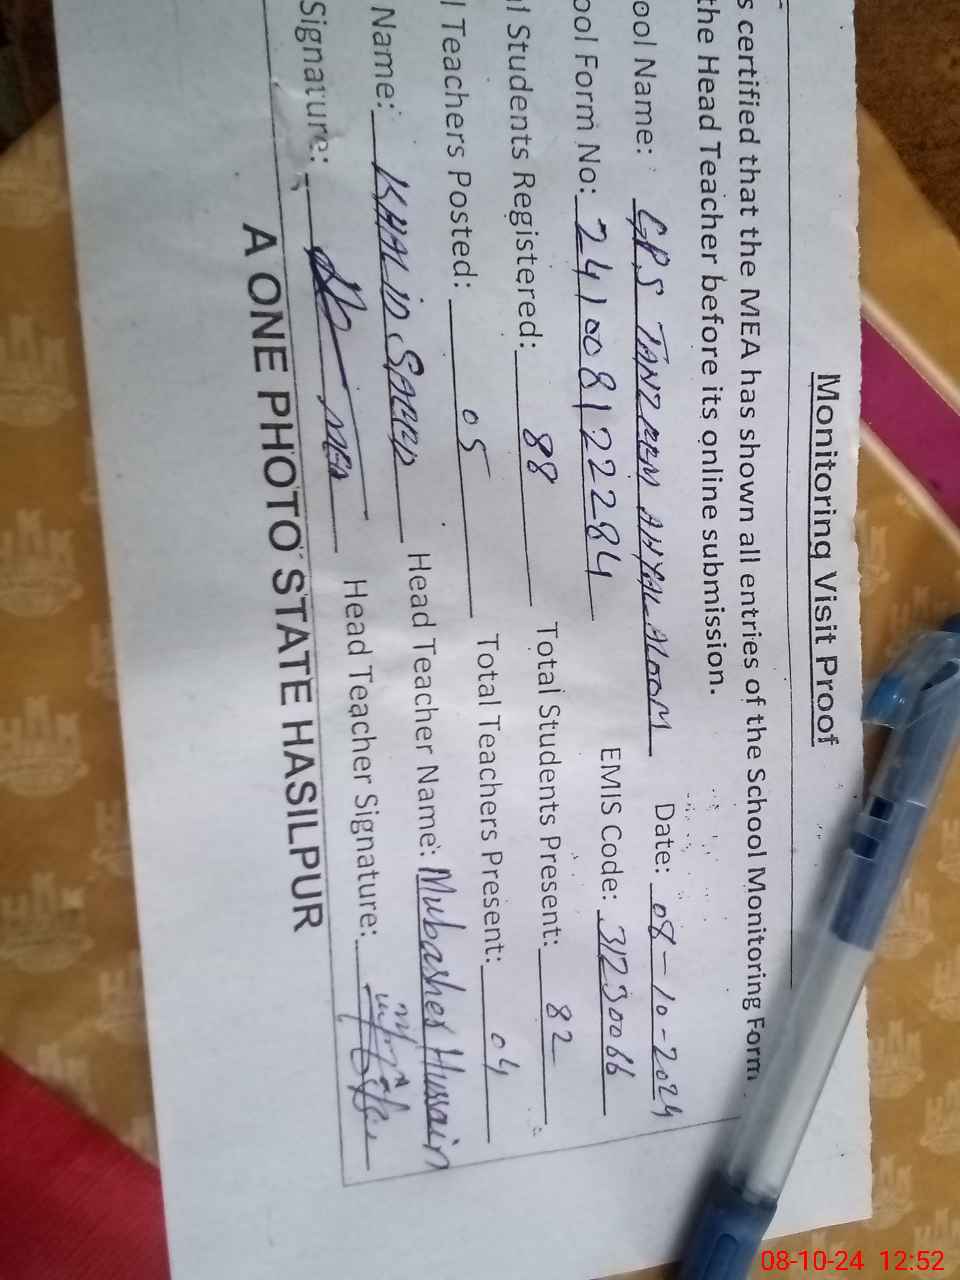 Monitoring Visit Proof
s certified that the MEA has shown all entries of the School Monitoring Form
the Head Teacher before its online submission.
ool Name: GPS TANZEEM AHYAL ALOOM Date: 08-10-2024
ool Form No: 241008122284 EMIS Code: 31230066
al Students Registered: 88 Total Students Present: 82
l Teachers Posted: 05 Total Teachers Present: 04
Name: KHALID SAEED Head Teacher Name: Mubasher Hussain
Signature: MEA Head Teacher Signature:
A ONE PHOTO STATE HASILPUR
08-10-24 12:52